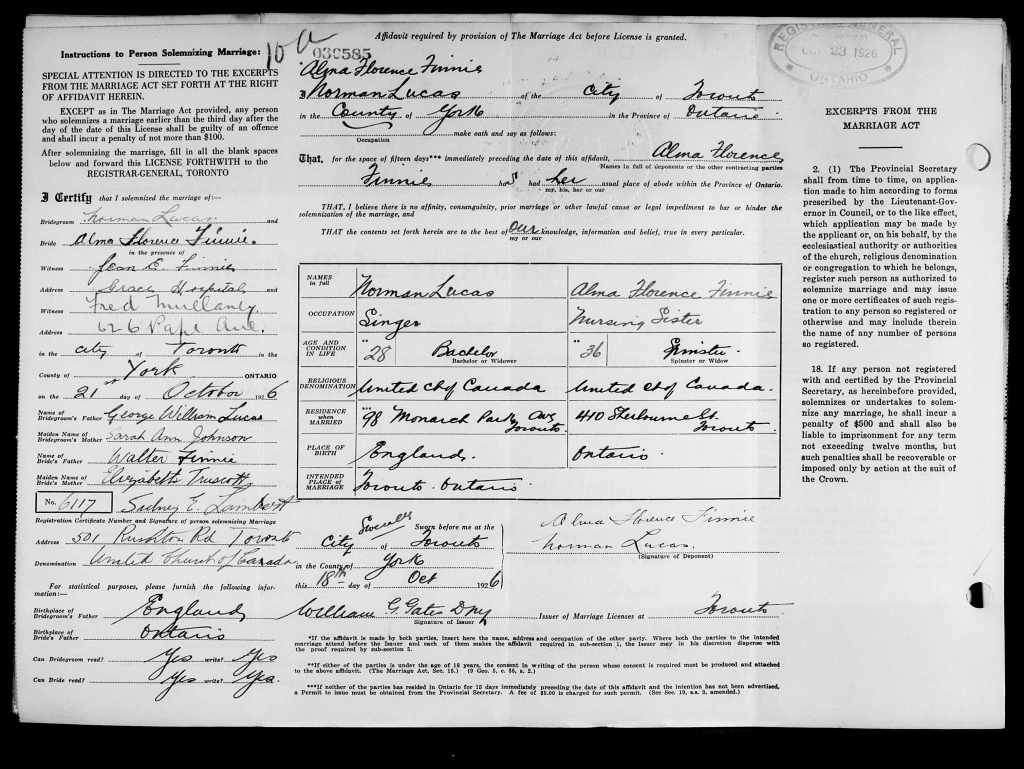 Instructions to Person Solemnizing Marriage:
SPECIAL ATTENTION IS DIRECTED TO THE EXCERPTS
FROM THE MARRIAGE ACT SET FORTH AT THE RIGHT
OF AFFIDAVIT HEREIN.
EXCEPT as in The Marriage Act provided, any person
who solemnizes a marriage earlier than the third day after the
day of the date of this License shall be guilty of an offence
and shall incur a penalty of not more than $100.
After solemnizing the marriage, fill in all the blank spaces
below and forward this LICENSE FORTHWITH to the
REGISTRAR-GENERAL, TORONTO
I Certify that I solemnized the marriage of:—
Bridegroom Norman Lucas and
Bride Alma Florence Finnie.
in the presence of
Witness Jean E. Finnie
Address Grace Hospital and
Witness Fred Mullaney
Address 626 Pape Ave.
in the City of Toronto in the
County of York ONTARIO
on the 21st day of October 1926
Name of Bridegroom's Father George William Lucas
Maiden Name of Bridegroom's Mother Sarah Ann Johnson
Name of Bride's Father Walter Finnie
Maiden Name of Bride's Mother Elizabeth Truscott
No. 6117 Sidney E. Lambert
Registration Certificate Number and Signature of person solemnizing Marriage
Address 501 Rushton Rd Toronto
Denomination United Church of Canada
For statistical purposes, please furnish the following infor-
mation:—
Birthplace of Bridegroom's Father England
Birthplace of Bride's Father Ontario
Can Bridegroom read? Yes write? Yes
Can Bride read? Yes write? Yes.
10 a
030585
Affidavit required by provision of The Marriage Act before License is granted.
Alma Florence Finnie
I Norman Lucas of the City of Toronto
in the County of York in the Province of Ontario
Occupation make oath and say as follows:
That, for the space of fifteen days*** immediately preceding the date of this affidavit, Alma Florence
Names in full of deponents or the other contracting parties
Finnie has had her usual place of abode within the Province of Ontario.
my, his, her or our
THAT, I believe there is no affinity, consanguinity, prior marriage or other lawful cause or legal impediment to bar or hinder the
solemnization of the marriage, and
THAT the contents set forth herein are to the best of our knowledge, information and belief, true in every particular.
my or our
NAMES in full Norman Lucas Alma Florence Finnie
OCCUPATION Singer Nursing Sister
AGE AND CONDITION IN LIFE **28 Bachelor **36 Spinster.
Bachelor or Widower Spinster or Widow
RELIGIOUS DENOMINATION United Ch of Canada United Ch of Canada.
RESIDENCE when MARRIED ***98 Monarch Park Ave Toronto 410 Sherbourne St. Toronto.
PLACE OF BIRTH England. Ontario.
INTENDED PLACE of MARRIAGE Toronto Ontario
Severally Sworn before me at the
City of Toronto
in the County of York
this 18th day of Oct 1926
Alma Florence Finnie
Norman Lucas.
(Signature of Deponent)
William G. Gates Dpy Issuer of Marriage Licenses at Toronto
Signature of Issuer
*If the affidavit is made by both parties, insert here the name, address and occupation of the other party. Where both the parties to the intended
marriage attend before the Issuer and each of them makes the affidavit required in sub-section 1, the Issuer may in his discretion dispense with
the proof required by sub-section 3.
**If either of the parties is under the age of 18 years, the consent in writing of the person whose consent is required must be produced and attached
to the above affidavit. (The Marriage Act, Sec. 15.) (9 Geo. 5, c. 35, s. 2.)
***If neither of the parties has resided in Ontario for 15 days immediately preceding the date of this affidavit and the intention has not been advertised,
a Permit to issue must be obtained from the Provincial Secretary. A fee of $5.00 is charged for such permit. (See Sec. 19, s.s. 3, amended.)
REGISTRAR GENERAL
OCT 23 1926
ONTARIO
EXCERPTS FROM THE
MARRIAGE ACT
2. (1) The Provincial Secretary
shall from time to time, on applica-
tion made to him according to forms
prescribed by the Lieutenant-Gov-
ernor in Council, or to the like effect,
which application may be made by
the applicant or, on his behalf, by the
ecclesiastical authority or authorities
of the church, religious denomination
or congregation to which he belongs,
register such person as authorized to
solemnize marriage and may issue
one or more certificates of such regis-
tration to any person so registered or
otherwise and may include therein
the name of any number of persons
so registered.
18. If any person not registered
with and certified by the Provincial
Secretary, as hereinbefore provided,
solemnizes or undertakes to solem-
nize any marriage, he shall incur a
penalty of $500 and shall also be
liable to imprisonment for any term
not exceeding twelve months, but
such penalties shall be recoverable or
imposed only by action at the suit of
the Crown.